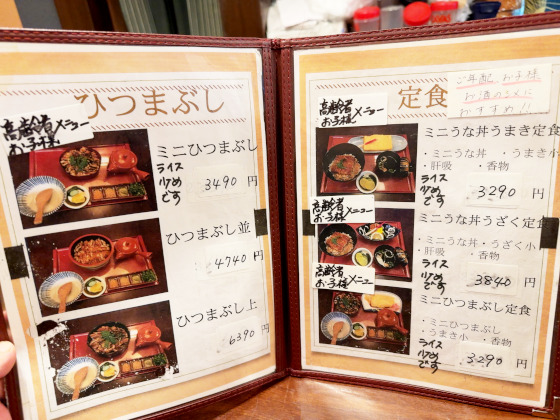 ひつまぶし
高齢者
お子様 メニュー
ミニひつまぶし
ライス
少め
です
3490 円
ひつまぶし並
4740 円
ひつまぶし上
6390 円
定食
ご年配 お子様
お酒のシメに
おすすめ!!
高齢者
お子様 メニュー
ミニうな丼うまき定食
・ミニうな丼 ・うまき小
・肝吸 ・香物
ライス
少め
です
3290 円
高齢者
お子様 メニュー
ミニうな丼うざく定食
・ミニうな丼・うざく小
・肝吸 ・香物
ライス
少め
です
3840 円
高齢者
お子様 メニュー
ミニひつまぶし定食
・ミニひつまぶし
・うまき小 ・香物
ライス
少め
です
3290 円